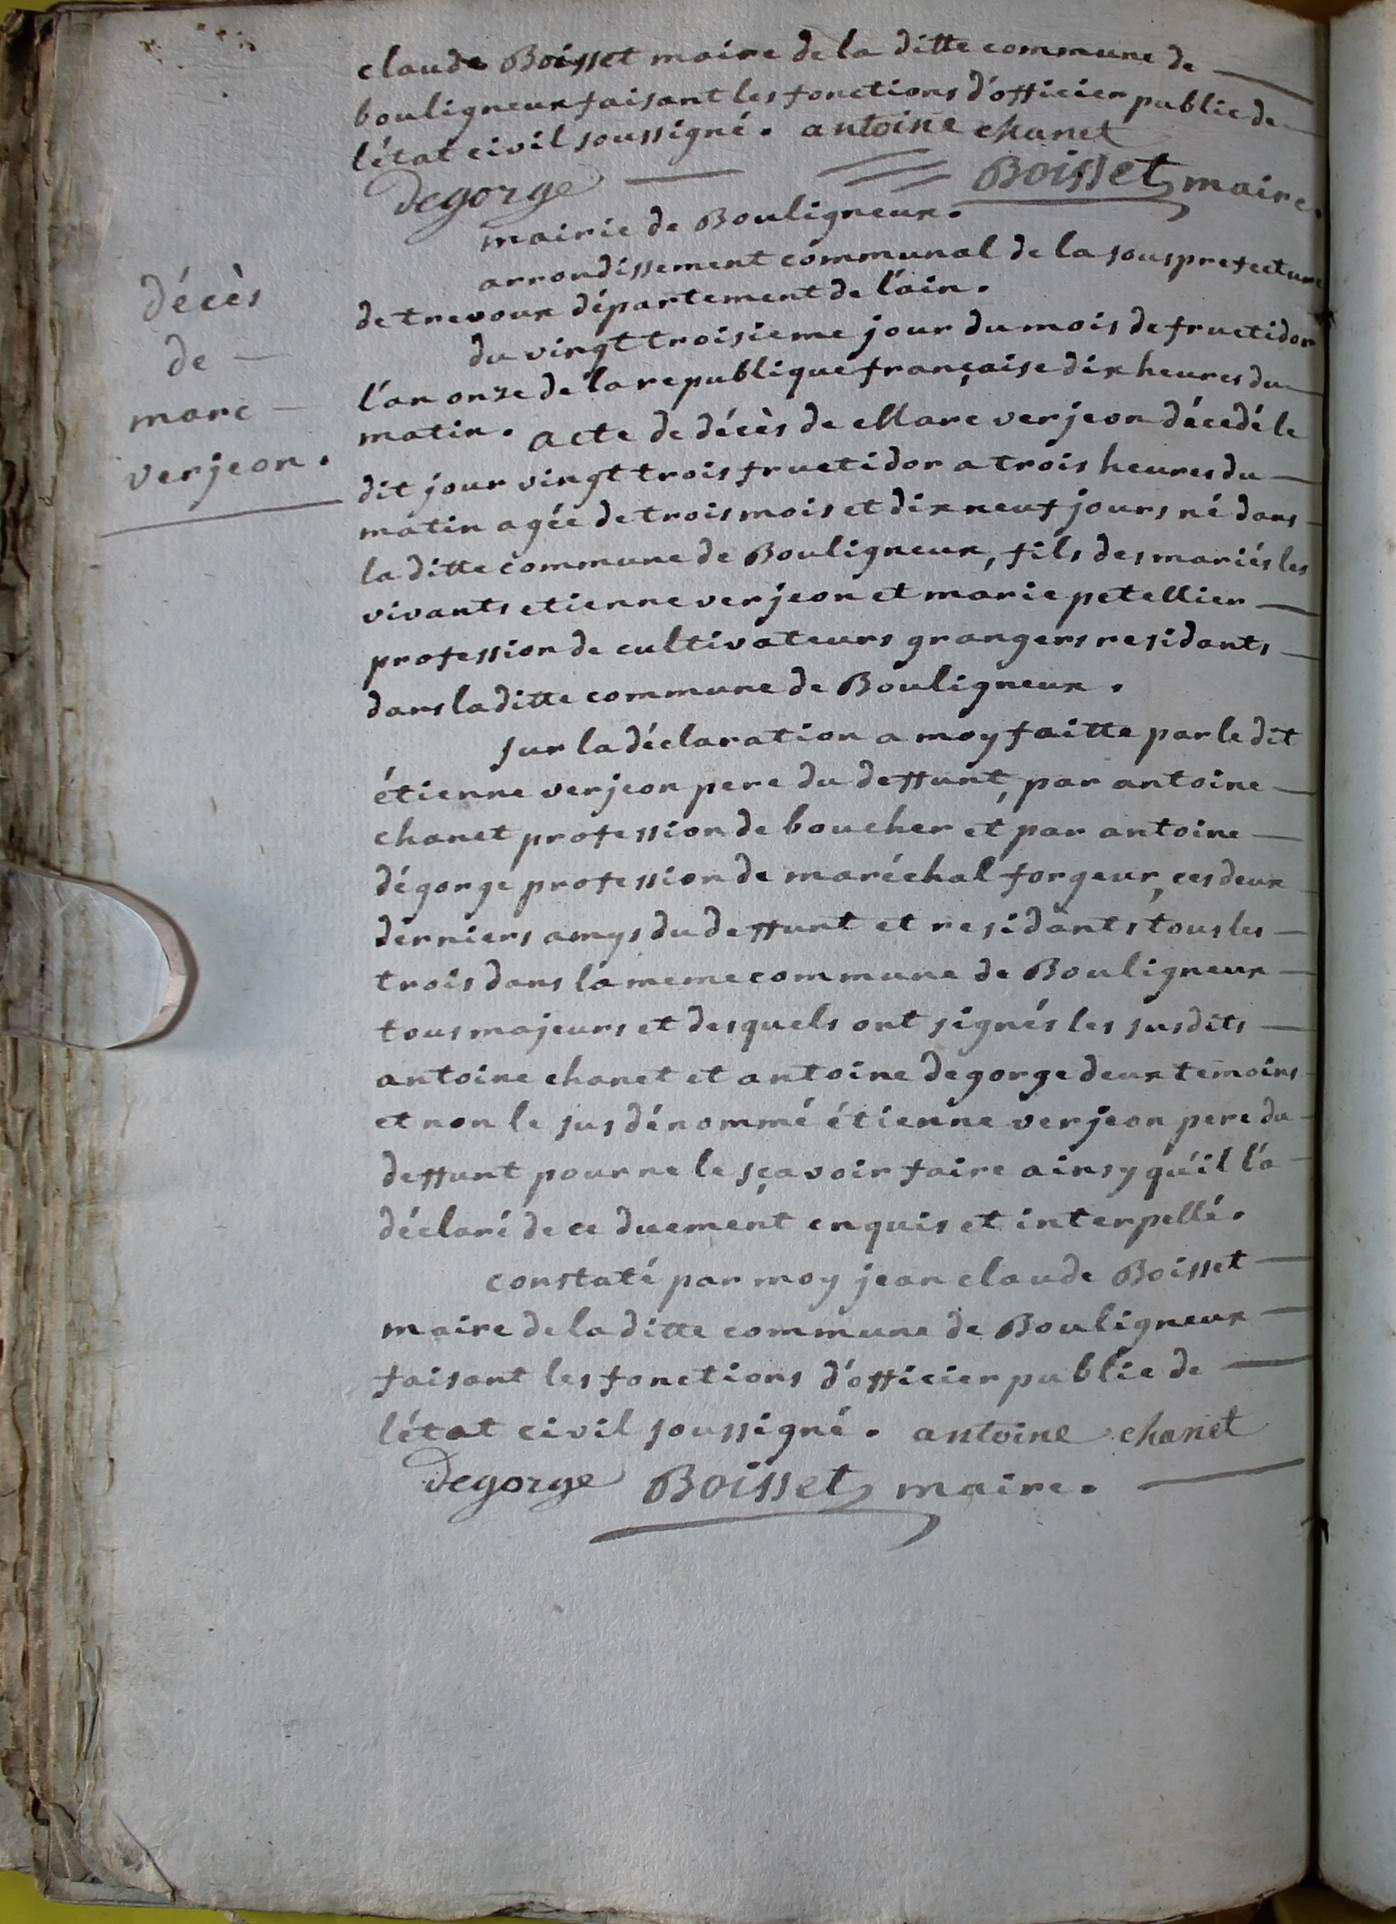 claude Boisset maire de la ditte commune de
bouligneux faisant les fonctions d'officier public de
l'état civil soussigné. antoine chanet
Degorge Boisset maire.
mairie de Bouligneux.
arrondissement communal de la sousprefecture
de trevoux département de l'ain.
du vingt troisieme jour du mois de fructidor
l'an onze de la republique française dix heures du
matin. acte de décès de Marc verjeon décedé le
dit jour vingt trois fructidor a trois heures du
matin agée de trois mois et dix neuf jours né dans
la ditte commune de Bouligneux, fils des mariés les
vivants etienne verjeon et marie petellier
profession de cultivateurs grangers residants
dans la ditte commune de Bouligneux.
sur la déclaration a moy faitte par le dit
étienne verjeon pere du deffunt, par antoine
chanet profession de boucher et par antoine
dégorge profession de maréchal forgeur, ces deux
derniers amys du deffunt et residants tous les
trois dans la meme commune de Bouligneux
tous majeurs et desquels ont signés les susdits
antoine chanet et antoine degorge deux temoins
et non le sus dénommé étienne verjeon pere du
deffunt pour ne le sçavoir faire ainsy qu'il l'a
déclaré de ce duement enquis et interpellé.
constaté par moy jean claude Boisset
maire de la ditte commune de Bouligneux
faisant les fonctions d'officier public de
l'état civil soussigné. antoine chanet
Degorge Boisset maire.
décès
de
marc
verjeon.